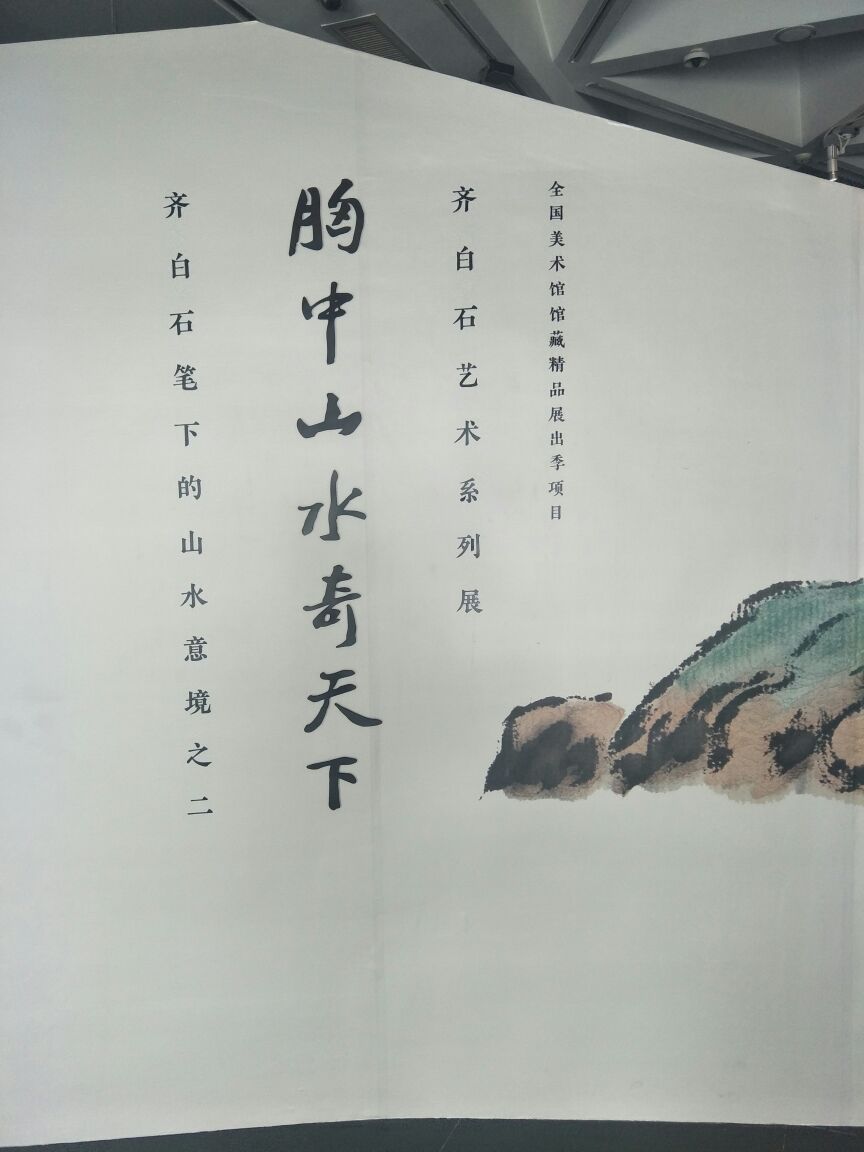 全国美术馆馆藏精品展出季项目
齐白石艺术系列展
胸中山水奇天下
齐白石笔下的山水意境之二